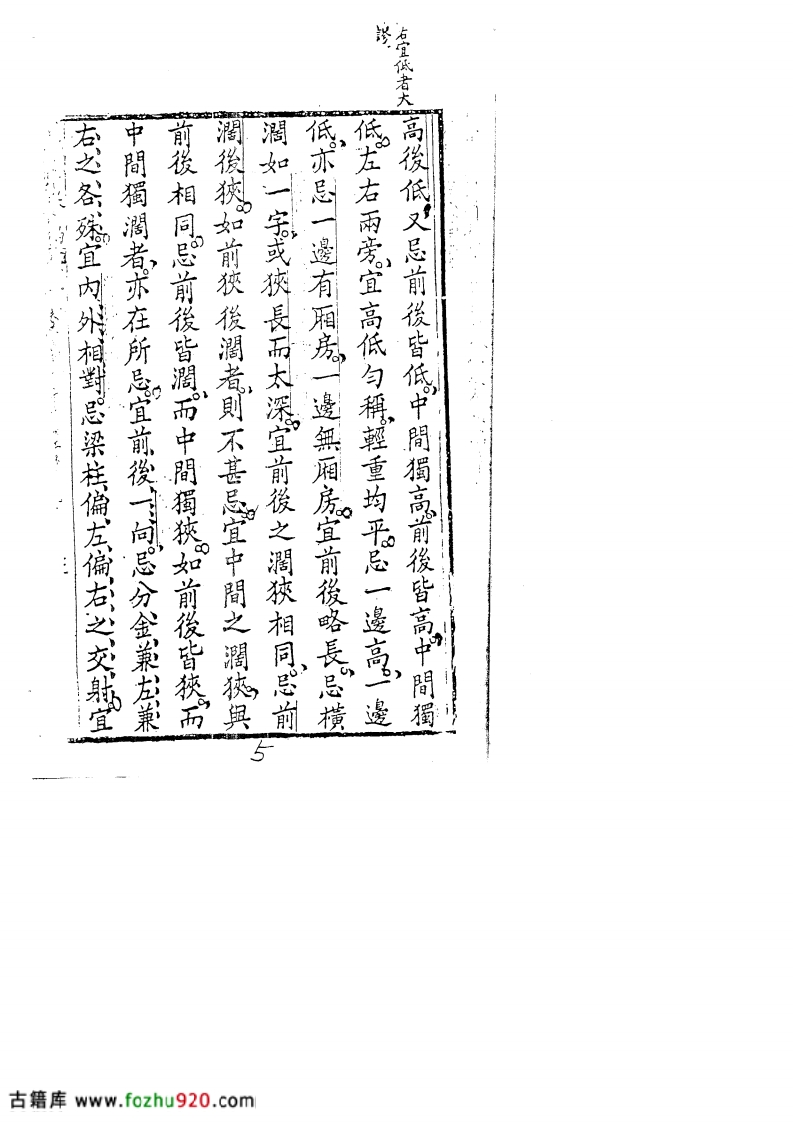 右宜低者大
謬
高後低又忌前後皆低中間獨高前後皆高中間獨
低左右兩旁宜高低勻稱輕重均平忌一邊高一邊
低亦忌一邊有廂房一邊無廂房宜前後略長忌橫
濶如一字或狹長而太深宜前後之濶狹相同忌前
濶後狹如前狹後濶者則不甚忌宜中間之濶狹與
前後相同忌前後皆濶而中間獨狹如前後皆狹而
中間獨濶者亦在所忌宜前後一向忌分金兼左兼
右之各殊宜內外相對忌梁柱偏左偏右之交射宜
5
古籍库 www.fozhu920.com